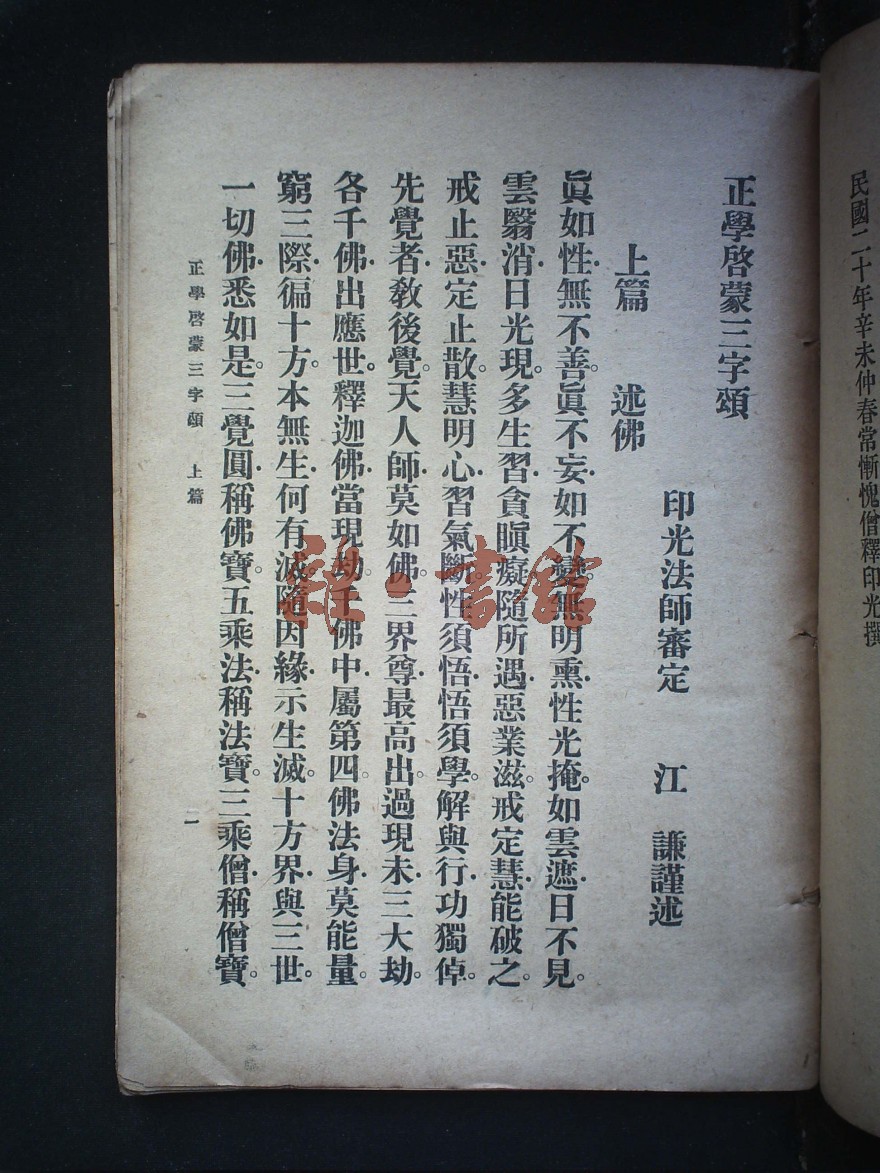 民國二十年辛未仲春常慚愧僧釋印光撰
正學啓蒙三字頌
印光法師審定　江　謙謹述
上篇　述佛
眞如性·無不善。眞不妄·如不變。無明熏·性光掩。如雲遮·日不見。
雲翳消·日光現。多生習·貪瞋癡。隨所遇·惡業滋。戒定慧·能破之。
戒止惡·定止散。慧明心·習氣斷。性須悟·悟須學。解與行·功獨倬。
先覺者·敎後覺。天人師·莫如佛。三界尊·最高出。過現未·三大劫。
各千佛·出應世。釋迦佛·當現劫。千佛中·屬第四。佛法身·莫能量。
窮三際·徧十方。本無生·何有滅。隨因緣·示生滅。十方界·與三世。
一切佛·悉如是。三覺圓·稱佛寶。五乘法·稱法寶。三乘僧·稱僧寶。
正學啓蒙三字頌　上篇
一
雜·書館